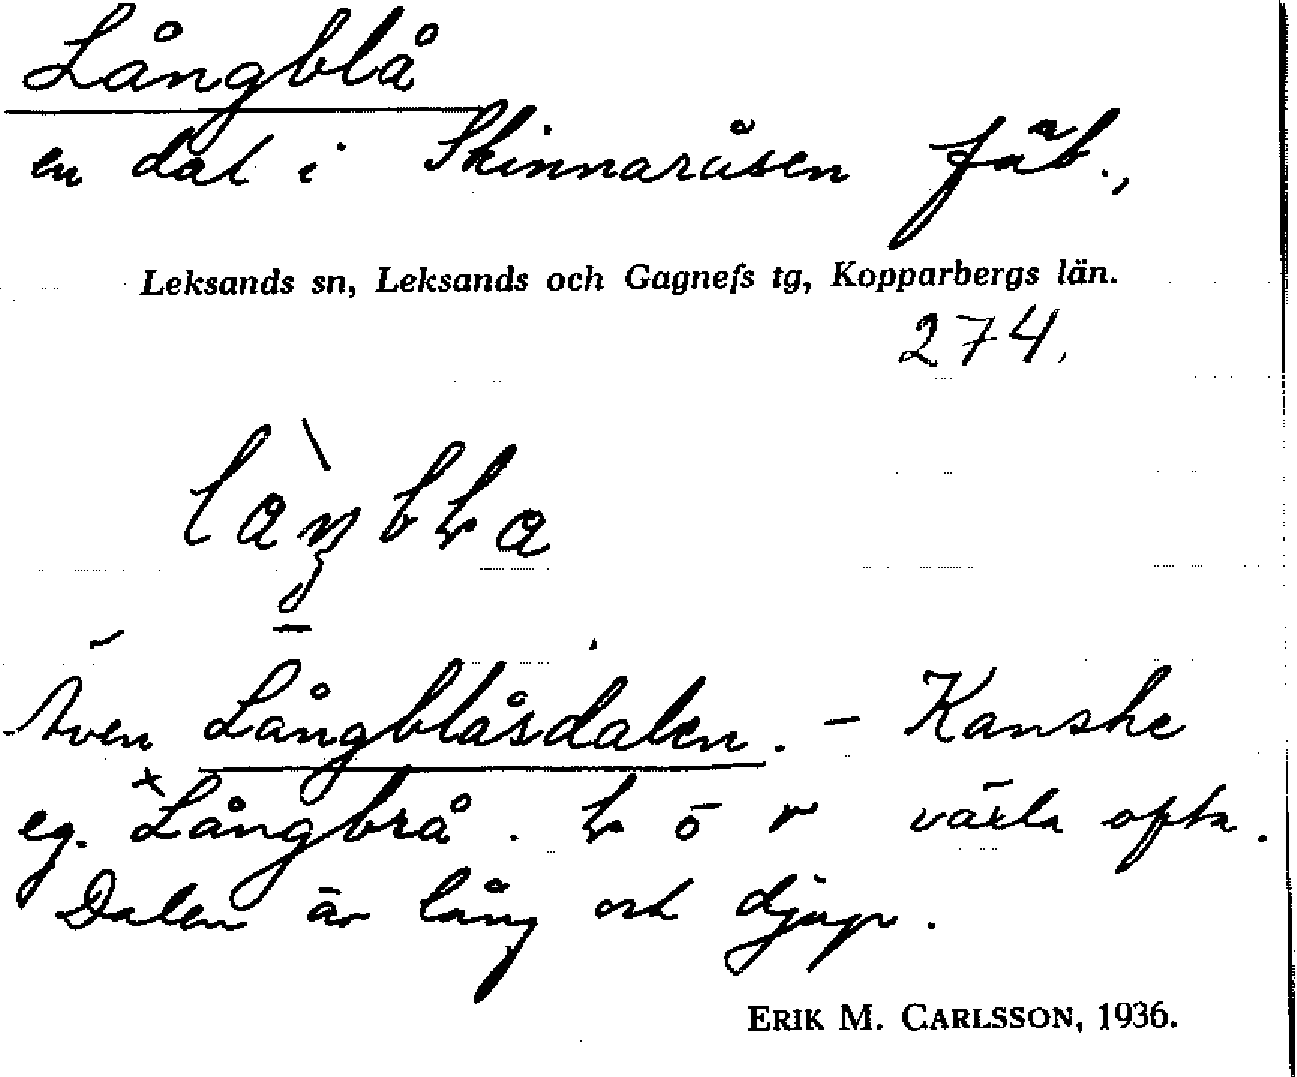 Långblå
en dal i Skinnaråsen fäb.,
Leksands sn, Leksands och Gagnefs tg, Kopparbergs län.
274.
Även Långblåsdalen. – Kanske
eg. ˣLångbrå. ō r växla ofta.
Dalen är lång och djup.
ERIK M. CARLSSON, 1936.